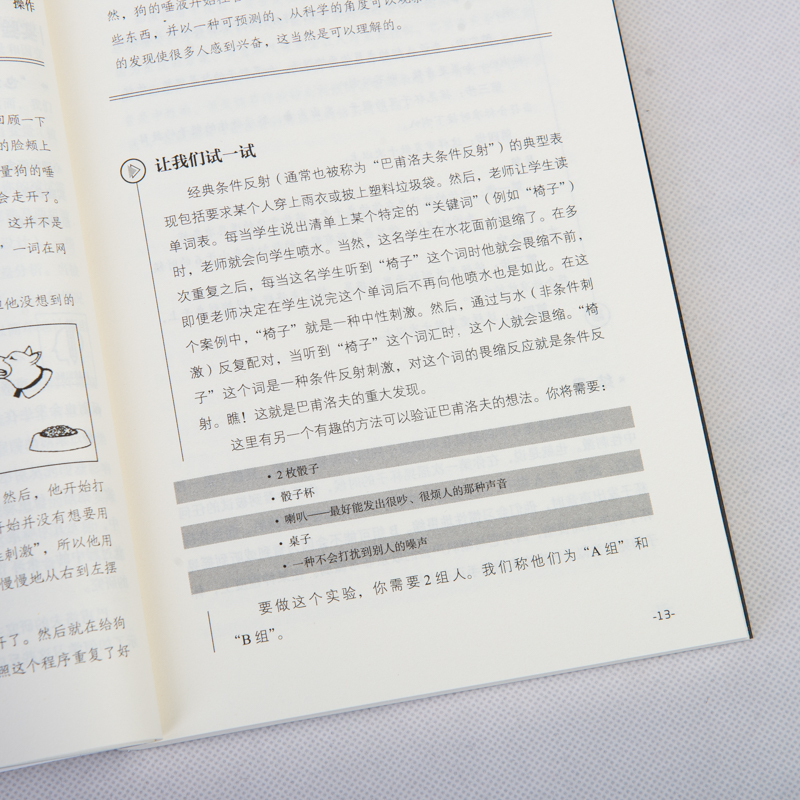 操作
回顾一下
的脸颊上
量狗的唾
会走开了。
这并不是
”一词在网
他没想到的
然后,他开始打
开始并没有想要用
刺激”,所以他用
慢慢地从右到左摆
开了。然后就在给狗
照这个程序重复了好
然,狗的唾液开始
些东西,并以一种可预测的、从科学的角度可以
的发现使很多人感到兴奋,这当然是可以理解的。
让我们试一试
经典条件反射(通常也被称为“巴甫洛夫条件反射”)的典型表
现包括要求某个人穿上雨衣或披上塑料垃圾袋。然后,老师让学生读
单词表。每当学生说出清单上某个特定的“关键词”(例如“椅子”)
时,老师就会向学生喷水。当然,这名学生在水花面前退缩了。在多
次重复之后,每当这名学生听到“椅子”这个词时他就会畏缩不前,
即便老师决定在学生说完这个单词后不再向他喷水也是如此。在这
个案例中,“椅子”就是一种中性刺激。然后,通过与水(非条件刺
激)反复配对,当听到“椅子”这个词汇时,这个人就会退缩。“椅
子”这个词是一种条件反射刺激,对这个词的畏缩反应就是条件反
射。瞧!这就是巴甫洛夫的重大发现。
这里有另一个有趣的方法可以验证巴甫洛夫的想法。你将需要:
• 2枚骰子
• 骰子杯
• 喇叭——最好能发出很吵、很烦人的那种声音
• 桌子
• 一种不会打扰到别人的噪声
要做这个实验,你需要2组人。我们称他们为“A组”和
“B组”。
-13-